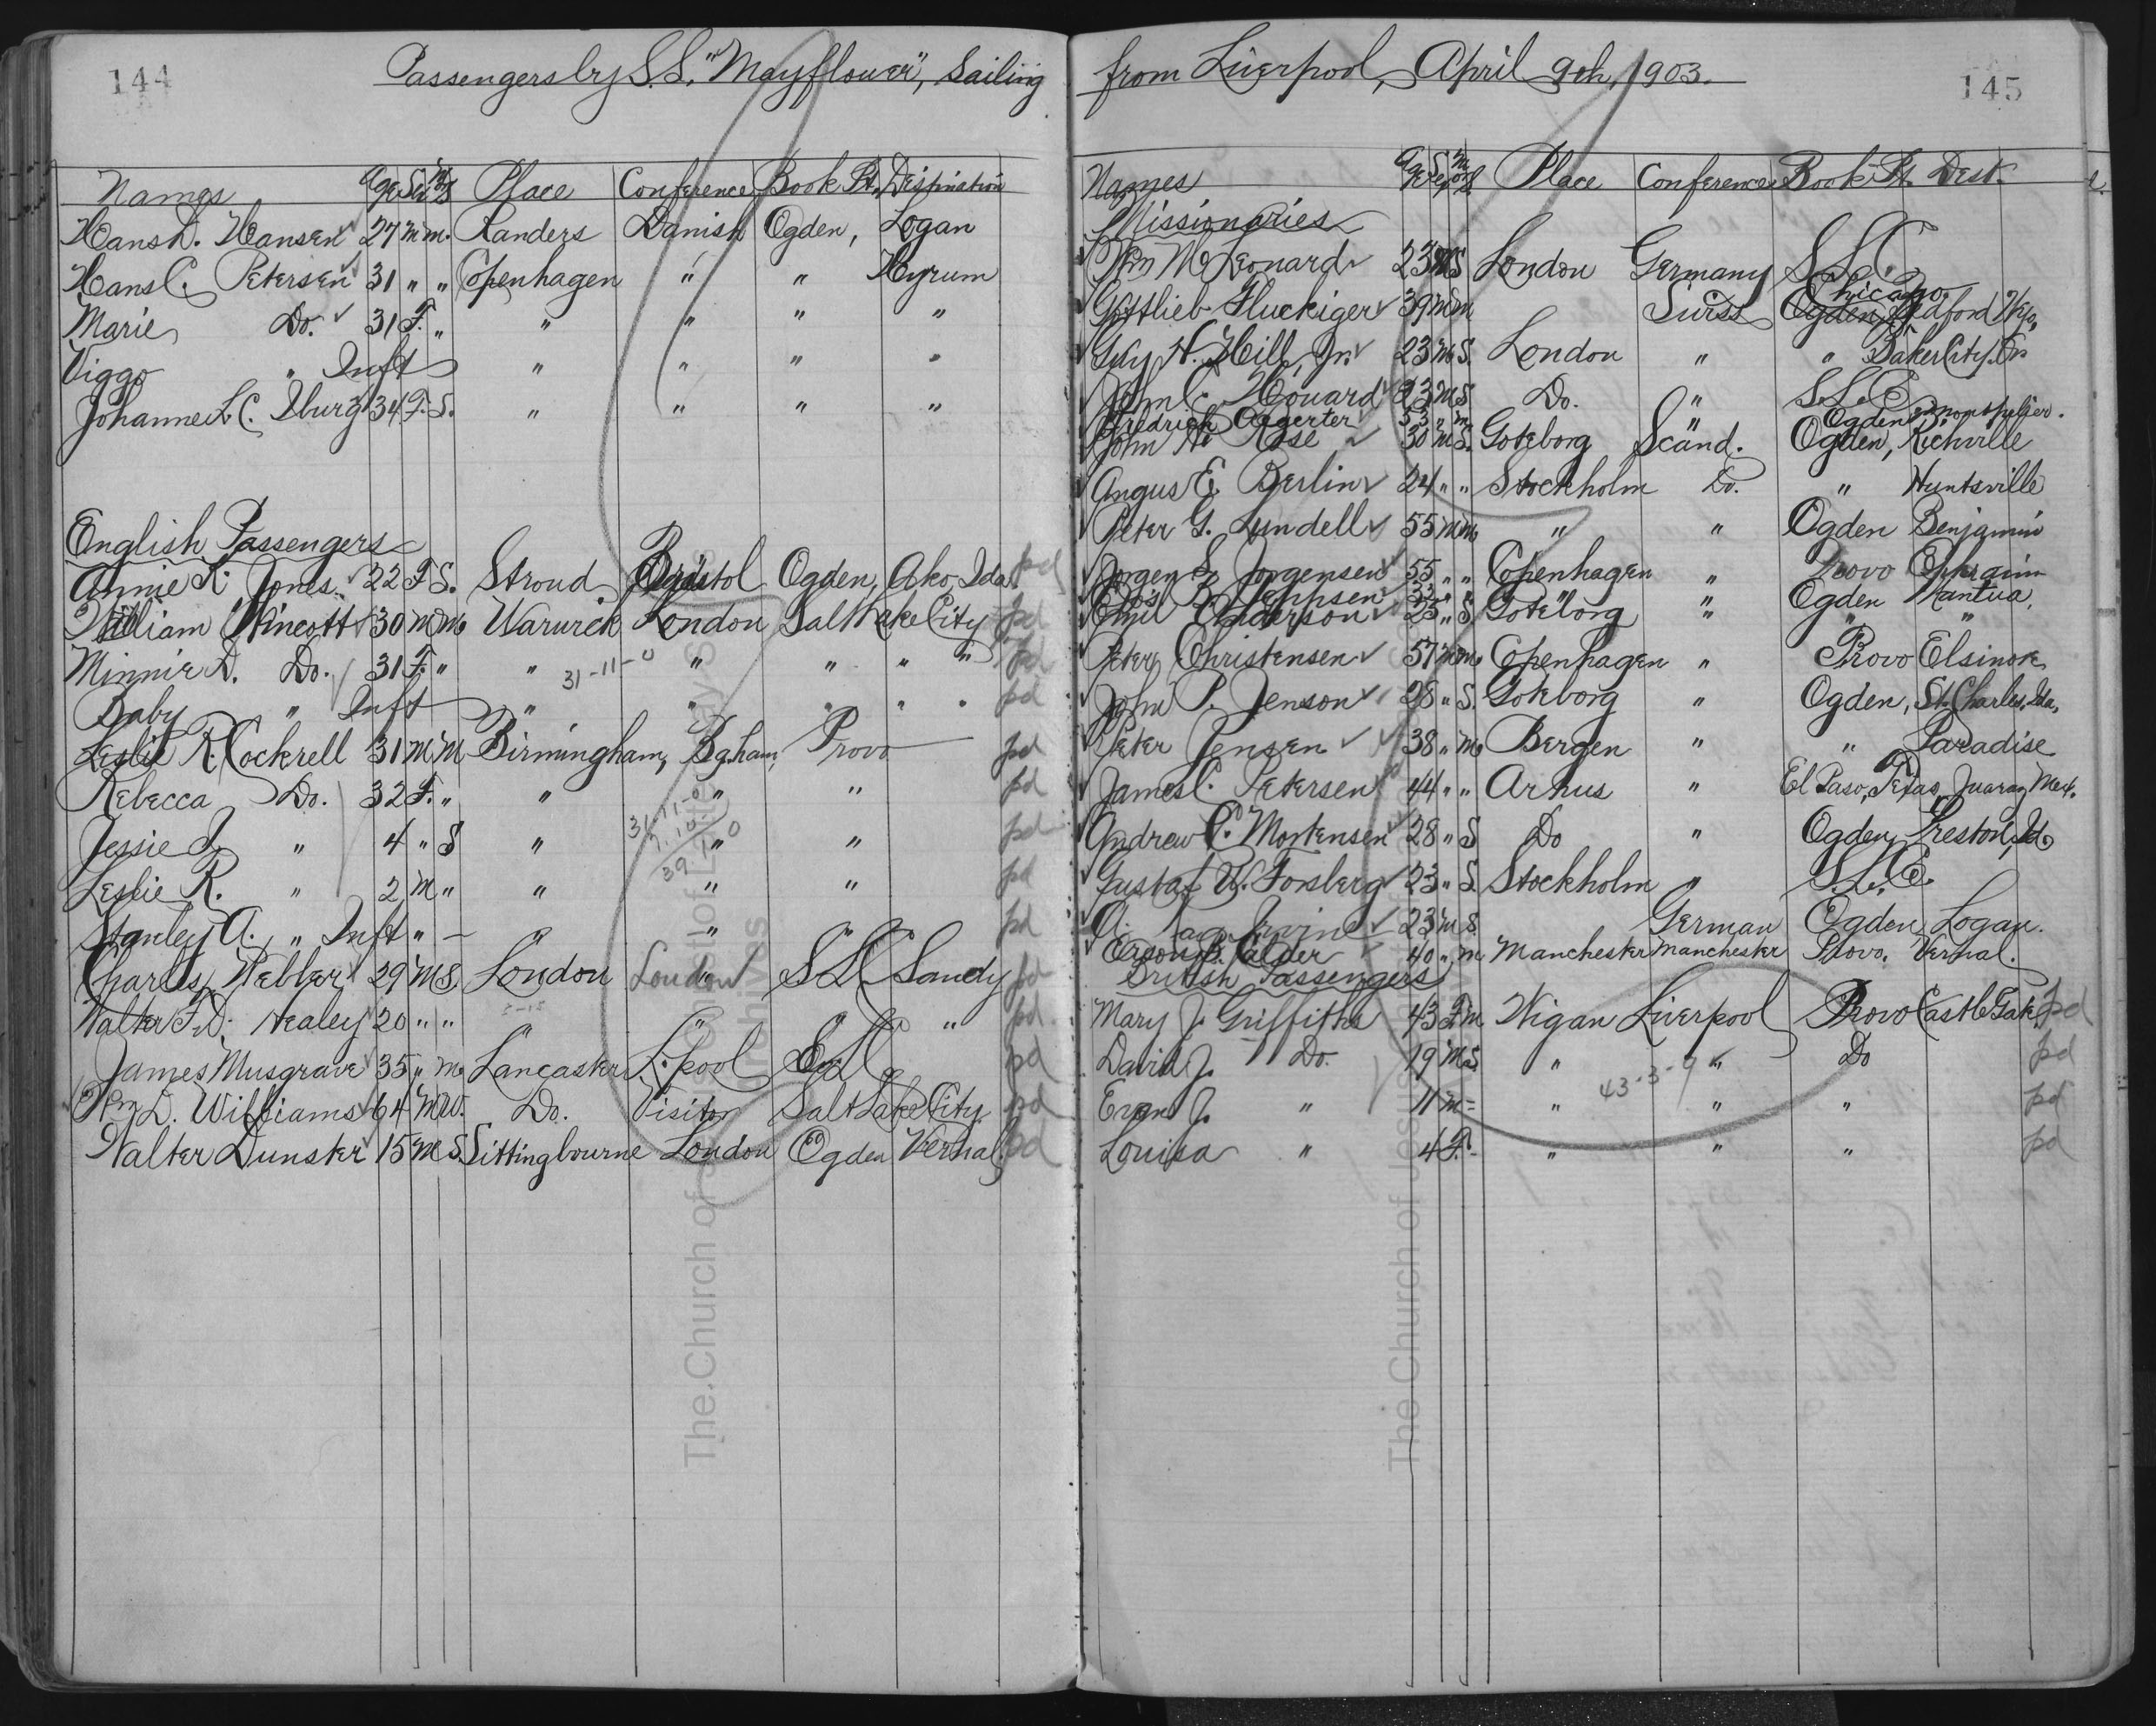 144
Passengers by S.S. "Mayflower", Sailing
Names Age Sex Place Conference Book Pt. Destination
Hans A. Hansen 27 m m. Randers Danish Ogden, Logan
Hans C. Petersen 31 " " Copenhagen " " Hyrum
Marie Do. 31 F. " " " " "
Viggo " Inft " " " "
Johanne L. C. Iburg 34 F. S. " " " "
English Passengers
Annie K. Jones 22 F S. Stroud Bristol Ogden, Ida. pd
William Wincott 30 m m Warwick London Salt Lake City pd
Minnie D. Do. 31 F. " " 31-11-0 " " " " pd
Baby " Inft " " " " " pd
Leslie R. Cockrell 31 m m Birmingham, Bgham, Provo pd
Rebecca Do. 32 F. " " " " pd
Jessie J. " 4 " S " " " pd
Leslie R. " 2 m " " " " pd
Stanley A. " Inft " - " " " pd
Charles Webber 29 m S. London London S L C Sandy pd
Walter F. D. Healey 20 " " " " " " pd
James Musgrave 35 " m Lancaster L.pool pd
Wm D. Williams 64 m W. Do. Visitor Salt Lake City pd
Walter Dunster 15 m S. Sittingbourne London Ogden Vernal pd
145
from Liverpool, April 9th, 1903.
Names Age Sex Place Conference Book Pt. Dest.
Missionaries
Wm M Leonard 23 m S London Germany S. L. C.
Chicago
Gottlieb Fluckiger 39 m m Swiss Ogden, Bedford Wyo,
Guy H. Hill, Jr. 23 m S. London " " Baker City. Or
John C. Howard 23 m S Do. " S. L. C.
Fredrick Aegerter 53 " m " Ogden Montpelier.
John H. Rose 30 m S. Goteborg Scand. Ogden, Richville
Angus E. Berlin 24 " " Stockholm Do. " Huntsville
Peter G. Lundell 55 m m " " Ogden Benjamin
Jorgen S. Jorgensen 55 " " Copenhagen " Provo Ephraim
Jeppsen " " " Ogden Mantua,
Emil Anderson 25 " S Goteborg " " "
Peter Christensen 57 m m Copenhagen " Provo Elsinore
John P. Jenson 28 " S. Goteborg " Ogden, St. Charles, Ida,
Peter Jensen 38 " m Bergen " " Paradise
James C. Petersen 44 " " Arhus " El Paso, Texas, Juarez Mex.
Andrew P. Mortensen 28 " S Do " Ogden, Preston, Id
Gustaf W. Forsberg 23 " S. Stockholm " S. L. C.
A. Irvine 23 m S. German Ogden Logan.
B. Calder 40 " m Manchester Manchester Provo. Vernal.
British Passengers
Mary J. Griffiths 43 F m Wigan Liverpool Provo Castle Gate pd
David J. Do. 19 m S " " Do pd
Evan J. " 11 m = " 43-3-9 " " pd
Louisa " 4 F. - " " " pd